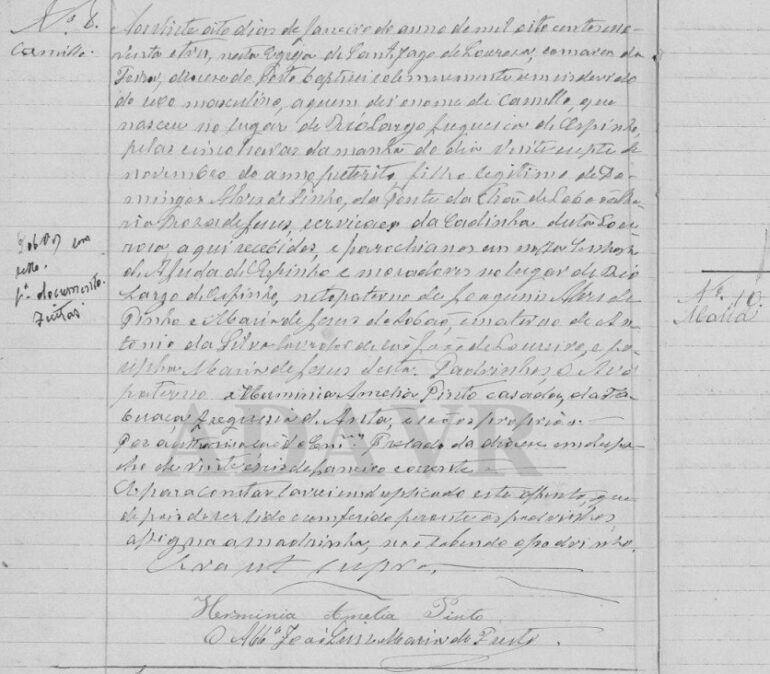 Nº 8.
Camillo.
Aos vinte oito dias de Janeiro do anno de mil oito centos no-
venta e tres, nesta Egreja de Sant Iago de Lourosa, comarca da
Feira, diocese do Porto baptisei solemnemente um individuo
do sexo masculino, a quem dei o nome de Camillo, que
nasceu no lugar de Rio Largo freguesia de Espinho,
pelas cinco horas da manhã do dia vinte e septe de
novembro do anno preterito, filho legitimo de Do-
mingos Alves de Pinho, da Ponte da Chão de Lobão e Ma-
ria Roza de Jesus, da desta Lou-
rosa, aqui recebidos, e parochianos em nossa Senhora
d'Ajuda de Espinho e moradores no lugar de Rio
Largo de Espinho, neto paterno de Joaquim Alves de
Pinho e Maria de Jesus de Lobão, e materno de An-
tonio da Silva lavrador de e Jo-
sepha Maria de Jesus desta. Padrinhos, o Avô
paterno e Herminia Amelia Pinto casados, da
freguesia d'Anta, e são os proprios.
Por authorisação do Exmº Prelado da diocese em despa-
cho de vinte e seis de Janeiro corrente.
E para constar lavrei em duplicado este assento, que
depois de ser lido e comferido perante os padrinhos,
assigna a madrinha, não sabendo o padrinho.
Era ut supra.
Herminia Amelia Pinto
O Abbº João Maria do Preste
pº documento.
Nº 10.
Maria
ADAVR